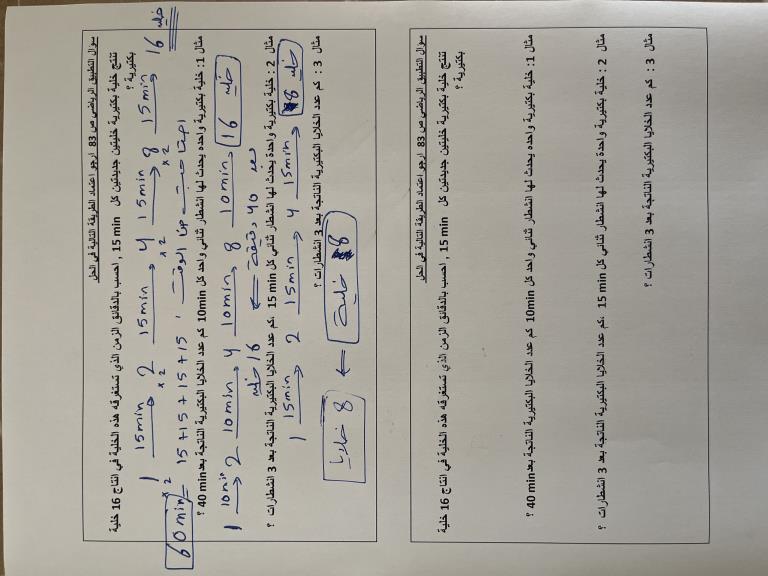 سؤال التطبيق الرياضي ص 83 ارجو اعتماد الطريقة التالية في الحل
تنتج خلية بكتيرية خليتين جديدتين كل 15 min , احسب بالدقائق الزمن الذي تستغرقه هذه الخلية في انتاج 16 خلية
بكتيرية ؟
1 15min 2 15min 4 15min 8 15min 16 خلية
×2 ×2 ×2 ×2
60 min = 15+15+15+15 احتاجت من الوقت
مثال 1: خلية بكتيرية واحده يحدث لها انشطار ثنائي واحد كل 10min كم عدد الخلايا البكتيرية الناتجة بعد 40 min ؟
1 10min 2 10min 4 10min 8 10min 16 خلية
16 خلية بعد 40 دقيقة
مثال 2: خلية بكتيرية واحدة يحدث لها انشطار ثنائي كل 15 min ,كم عدد الخلايا البكتيرية الناتجة بعد 3 انشطارات ؟
1 15min 2 15min 4 15min 8 خلية
مثال 3 : كم عدد الخلايا البكتيرية الناتجة بعد 3 انشطارات ؟
8 خلية
8 خلايا
سؤال التطبيق الرياضي ص 83 ارجو اعتماد الطريقة التالية في الحل
تنتج خلية بكتيرية خليتين جديدتين كل 15 min , احسب بالدقائق الزمن الذي تستغرقه هذه الخلية في انتاج 16 خلية
بكتيرية ؟
مثال 1: خلية بكتيرية واحده يحدث لها انشطار ثنائي واحد كل 10min كم عدد الخلايا البكتيرية الناتجة بعد 40 min ؟
مثال 2 : خلية بكتيرية واحدة يحدث لها انشطار ثنائي كل 15 min ,كم عدد الخلايا البكتيرية الناتجة بعد 3 انشطارات ؟
مثال 3 : كم عدد الخلايا البكتيرية الناتجة بعد 3 انشطارات ؟